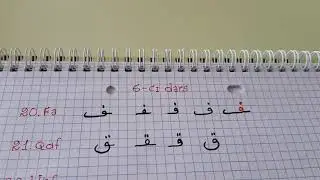 6-ci dərs
20. Fa ف ف ف ف ف
21. Qaf ق ق ق ق